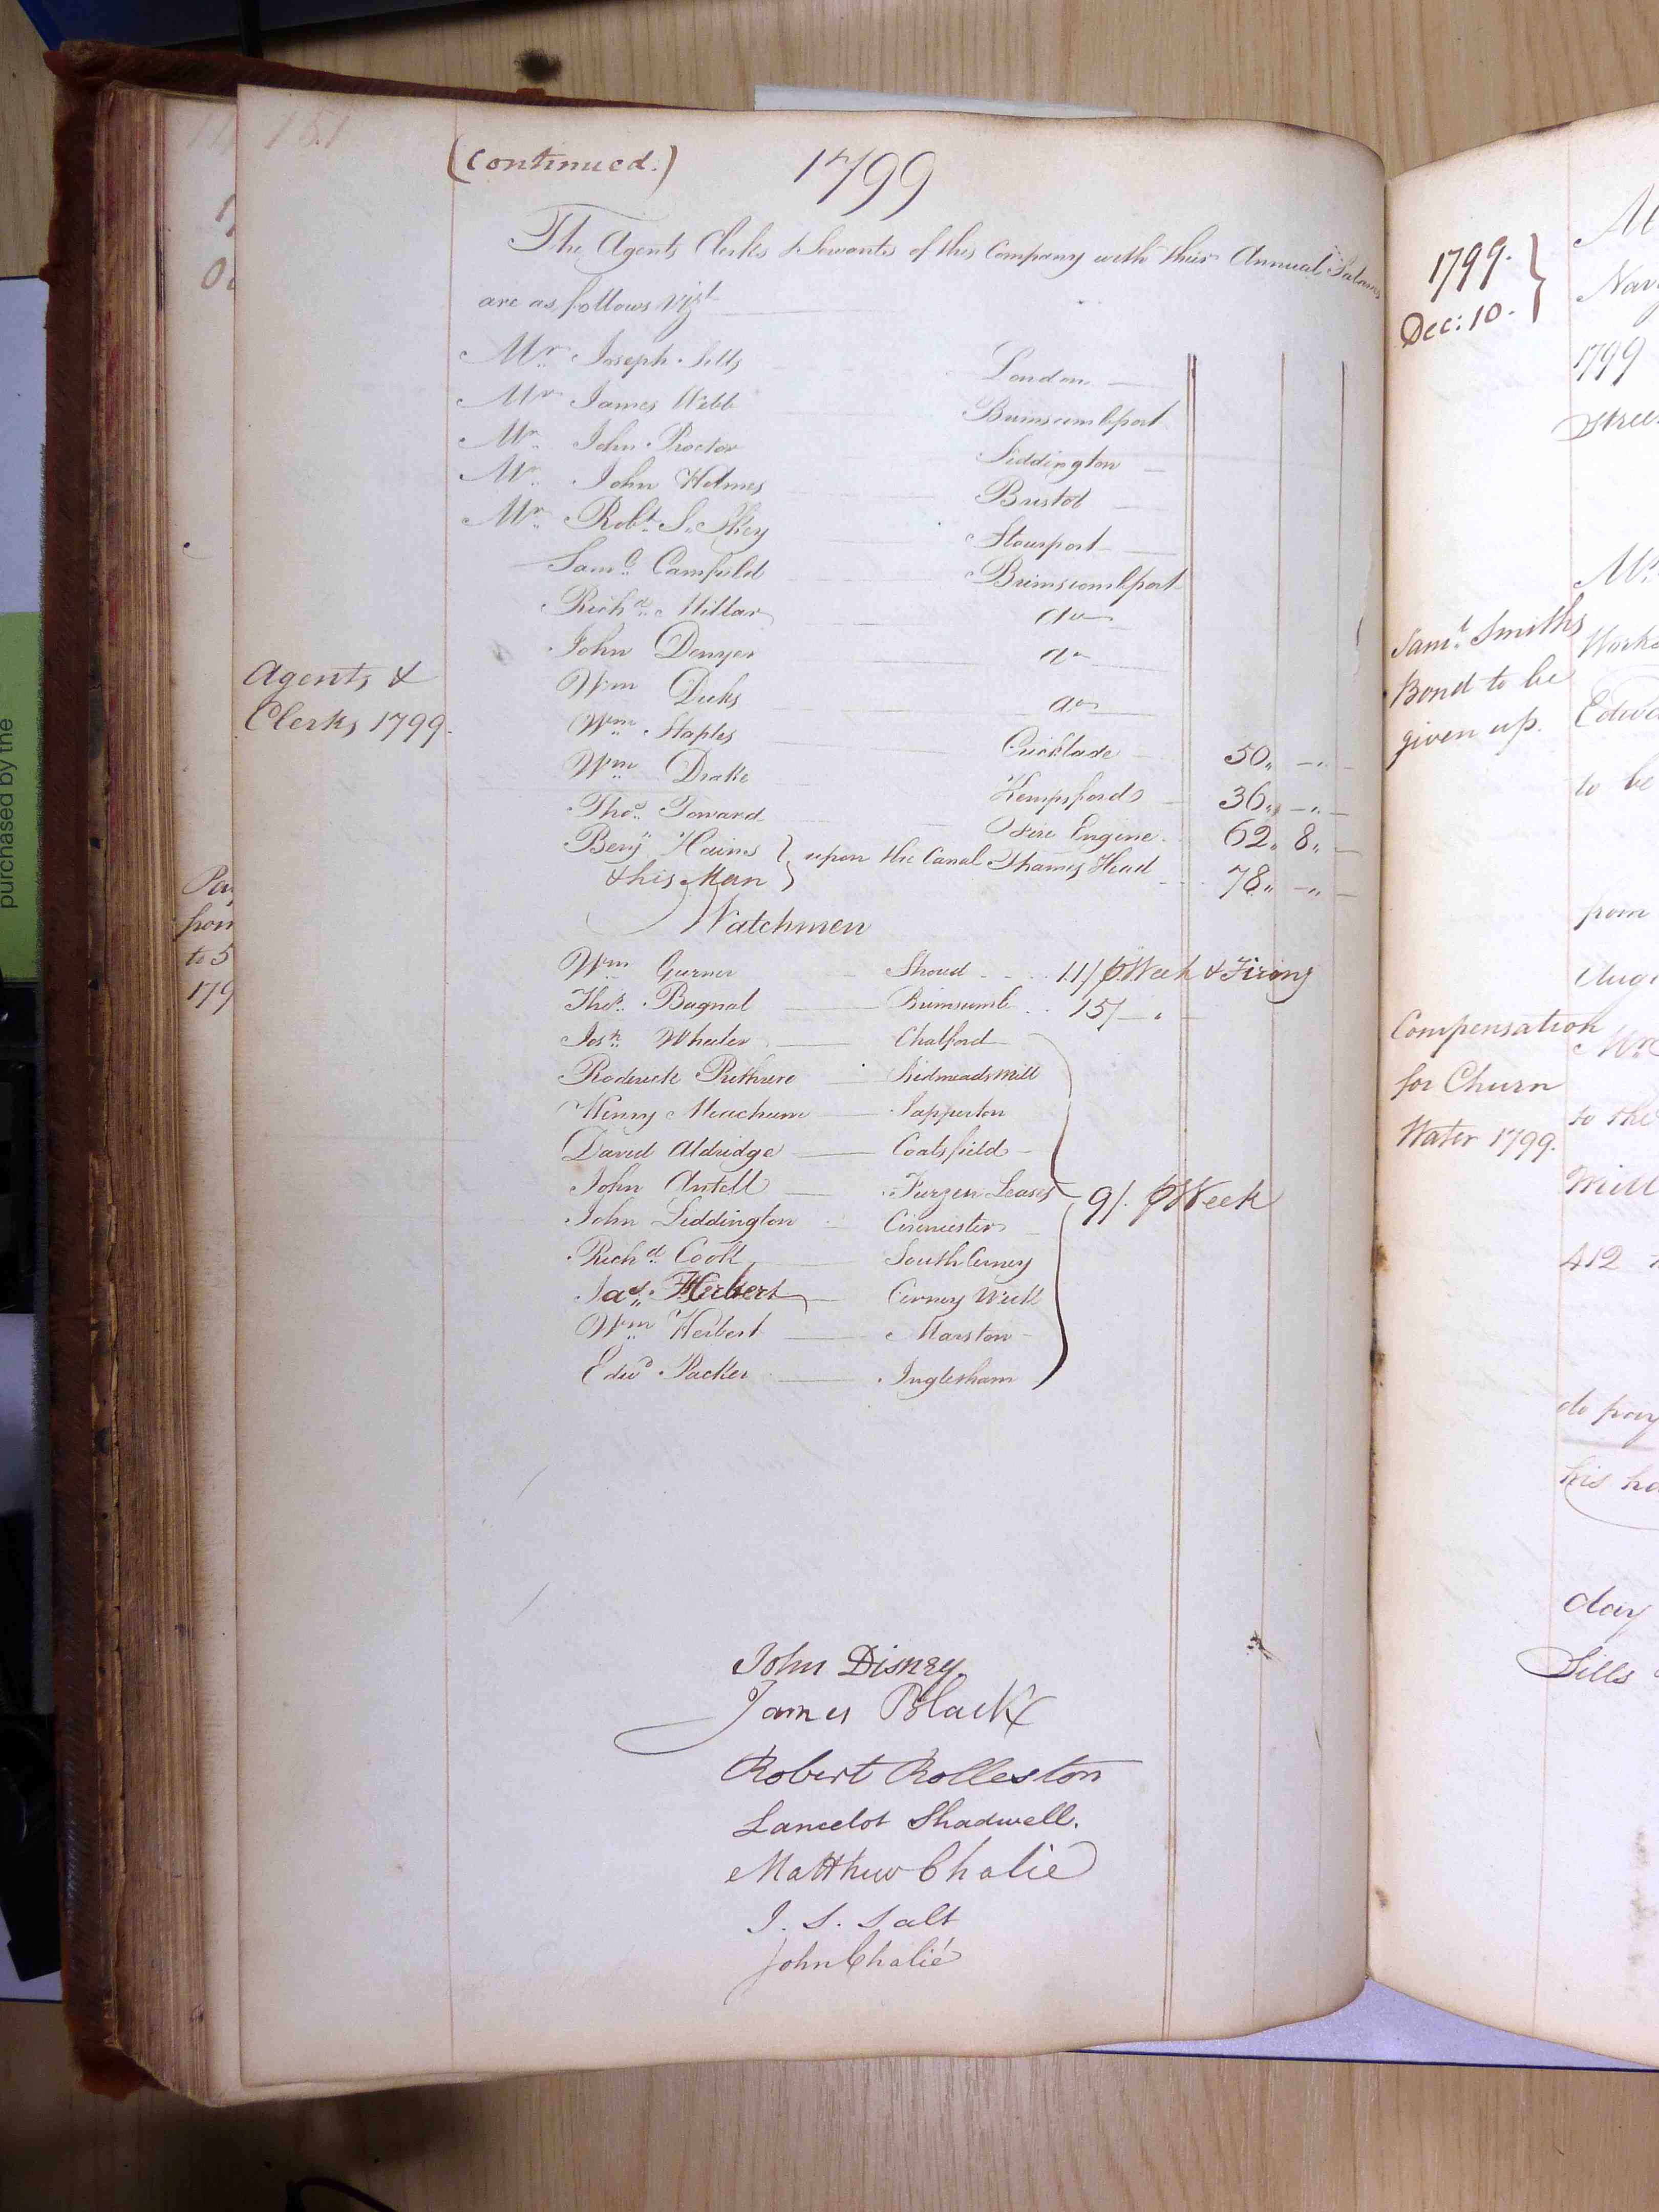 151
(Continued.) 1799
The Agents Clerks & Servants of this Company with their Annual Salaries
are as follows Vizt.
Mr. Joseph Sills London
Mr. James Webb Brimscombport
Mr. John Proctor Siddington
Mr. John Holmes Bristol
Mr. Robt. S. Skey Stourport
Saml. Camfield Brimscombport
Richd. Millar do
John Denyer do
Wm Deeks do
Wm. Staples Cricklade 50,, -,, -
Wm. Drake Kempsford 36,, -,, -
Thos. Toward Fire Engine 62,, 8,, -
Benj. Haines } upon the Canal Thames Head 78,, -,, -
& his Man }
Watchmen
Wm Gurner Stroud 11/ ⅌ Week & Firing
Thos. Bagnal Brimscomb 15/ -
Josh. Wheeler Chalford
Roderick Rethrere Ridmeads Mill
Henry Meacham Sapperton
David Aldridge Coatsfield
John Antell Furzen Leases 9/. ⅌ Week
John Siddington Cirencester
Richd. Cook South Cerney
Jas. Herbert Cerney Wick
Wm. Herbert Marston
Edwd. Packer Inglesham
Agents &
Clerks 1799.
John Disney
James Black
Robert Rolleston
Lancelot Shadwell.
Matthew Chalie
J. S. Salt
John Chalié
1799.
Dec: 10.
1799
Saml. Smiths
Bond to be
given up.
to be
from
Compensation
for Churn
Water 1799.
to the
Mill
412
do pay
his
day
Sills
to 5
179
purchased by the